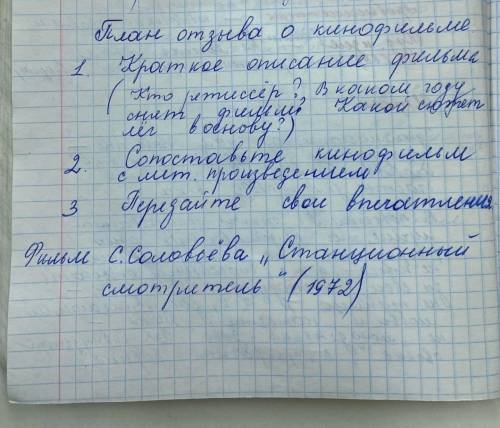 План отзыва о кинофильме
1. Краткое описание фильма
( Кто режиссёр? В каком году
снят фильм? Какой сюжет
лёг в основу?)
2. Сопоставьте кинофильм
с лит. произведением
3 Передайте свои впечатления.
Фильм С. Соловьёва „Станционный
смотритель" (1972)